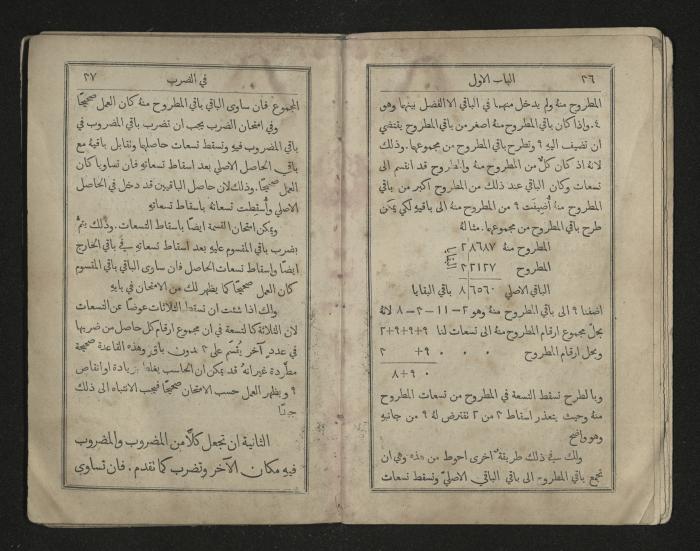 ٢٦ الباب الاول
المطروح منهُ ولم يدخل منهما في الباقي الا الفضل بينها وهو
٤. واذا كان باقي المطروح منهُ اصغر من باقي المطروح يقتضي
ان تضيف اليهِ ٩ وتطرح باقي المطروح من مجموعها. وذلك
لانهُ اذ كان كلٌّ من المطروح منهُ والمطروح قد انقسم الى
تسعات وكان الباقي عند ذلك من المطروح اكبر من باقي
المطروح منهُ أُضيفت ٩ من المطروح منهُ الى باقيهِ لكي يمكن
طرح باقي المطروح من مجموعها. مثالهُ
المطروح منهُ ٢٨٦٨٧
المطروح ٢٢١٢٧
الباقي الاصلي ٨٦٥٦٠ باقي البقايا
اضفنا ٩ الى باقي المطروح منهُ وهو ٢ – ١١ – ٢ – ٨ لانهُ
بحلّ مجموع ارقام المطروح منهُ الى تسعات لنا ٩+٩+٩+٢
وبحل ارقام المطروح ٠ ٠ ٠ ٩+ ٢
٠ ٩+٨
وبالطرح تسقط التسعة في المطروح من تسعات المطروح
منهُ وحيث يتعذر اسقاط ٢ من ٢ نقترض لهُ ٩ من جانبهِ
وهو واضح
ولك في ذلك طريقةٌ اخرى احوط من هذه وهي ان
تجمع باقي المطروح الى باقي الباقي الاصليّ وتسقط تسعات
في الضرب ٢٧
المجموع فان ساوى الباقي باقي المطروح منهُ كان العمل صحيحًا
وفي امتحان الضرب يجب ان تضرب باقي المضروب في
باقي المضروب فيهِ وتسقط تسعات حاصلها وتقابل باقيهُ مع
باقي الحاصل الاصلي بعد اسقاط تسعاتهِ فان تساويا كان
العمل صحيحًا. وذلك لان حاصل الباقيين قد دخل في الحاصل
الاصلي وأُسقطت تسعاتهُ باسقاط تسعاتهِ
ويمكن امتحان القسمة ايضًا باسقاط التسعات. وذلك يتمُّ
بضرب باقي المقسوم عليهِ بعد اسقاط تسعاتهِ في باقي الخارج
ايضًا واسقاط تسعات الحاصل فان ساوى الباقي باقي المقسوم
كان العمل صحيحًا كما يظهر لك من الامتحان في بابهِ
ولك اذا شئت ان تسقط الثلاثات عوضًا عن التسعات
لان الثلاثة كالتسعة في ان مجموع ارقام كل حاصل من ضربها
في عدد آخر يُقسَم على ٣ بدون باقٍ وهذه القاعدة صحيحة
مطّردة غير انهُ قد يمكن ان الحاسب يغلط بزيادة او انقاص
٩ ويظهر العمل حسب الامتحان صحيحًا فيجب الانتباه الى ذلك
جدًّا
الثانية ان تجعل كلًّا من المضروب والمضروب
فيهِ مكان الآخر وتضرب كما تقدم. فان تساوى